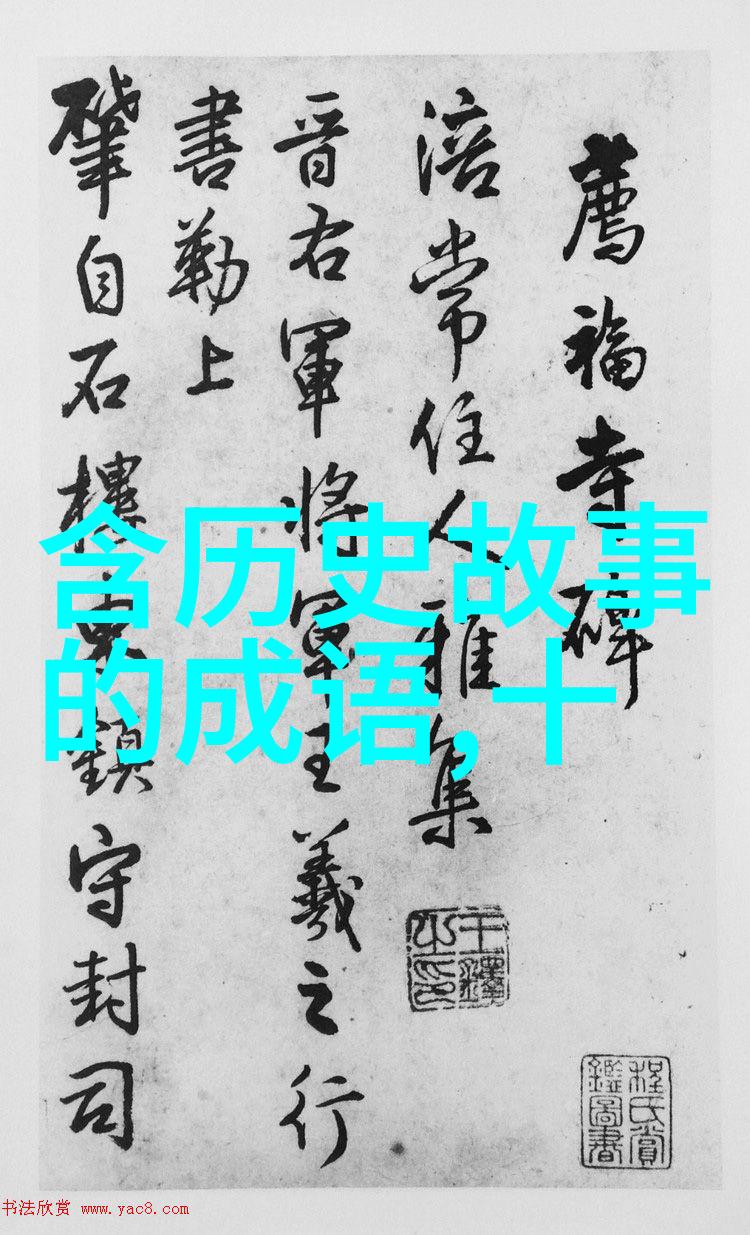 薦福寺碑
涪常住人雅集
晋右軍將軍王羲之行
書勒上
肇自石樓
鎮守封司
含历史故事
的成语,十
程氏賞
鑑圖書
书法欣赏 www.yac8.com